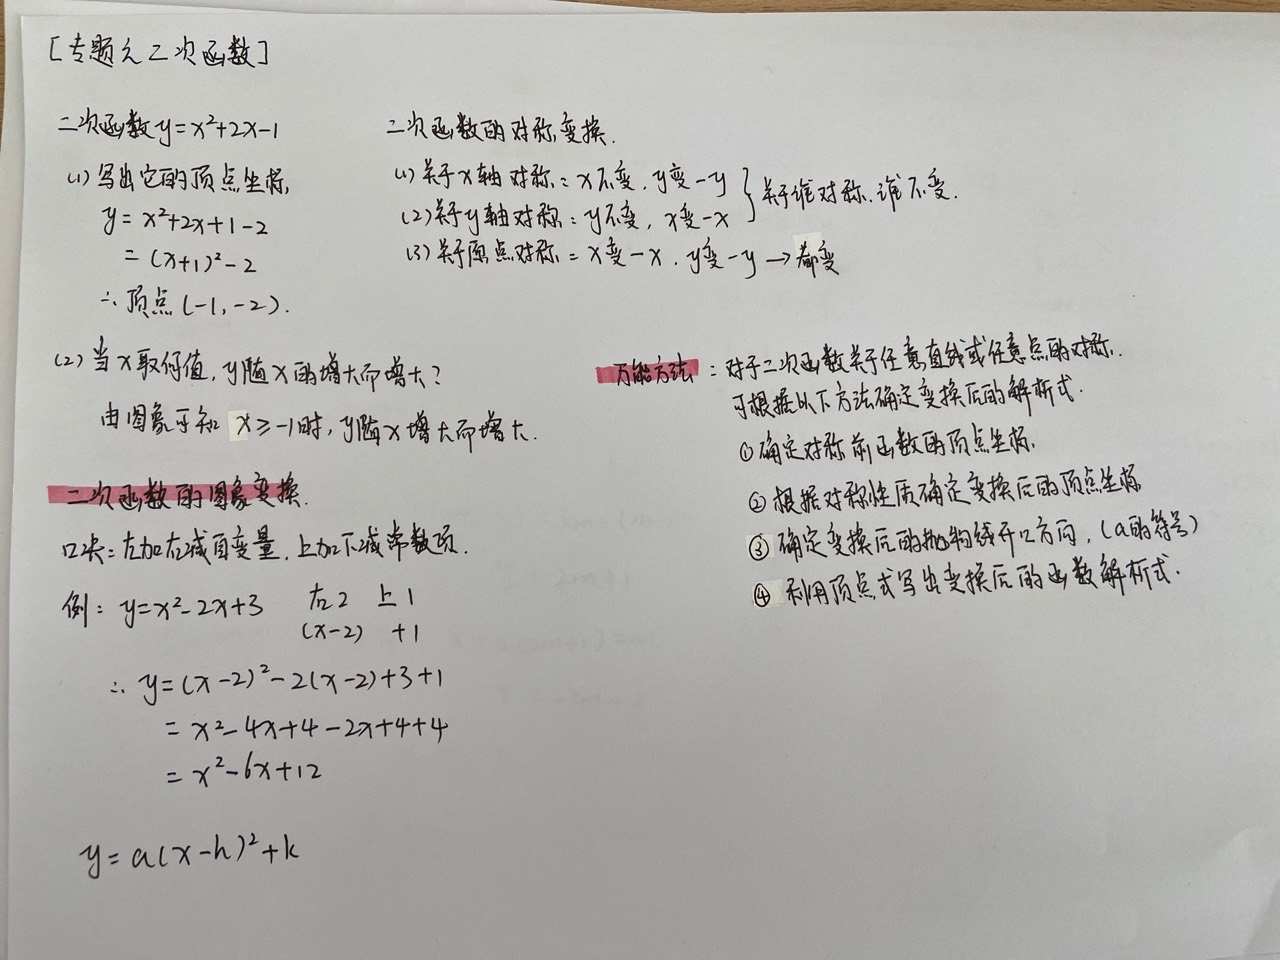 [专题之二次函数]
二次函数y=x²+2x-1
(1) 写出它的顶点坐标,
y=x²+2x+1-2
=(x+1)²-2
∴顶点(-1,-2).
(2) 当x取何值,y随x的增大而增大?
由图象可知 x≥-1时,y随x增大而增大.
二次函数的图象变换.
口诀:左加右减自变量,上加下减常数项.
例: y=x²-2x+3 右2 上1
(x-2) +1
∴ y=(x-2)²-2(x-2)+3+1
=x²-4x+4-2x+4+4
=x²-6x+12
y=a(x-h)²+k
二次函数的对称变换.
(1)关于x轴对称:x不变,y变-y
(2)关于y轴对称:y不变,x变-x
} 关于谁对称,谁不变.
(3)关于原点对称:x变-x,y变-y→都变
万能方法:对于二次函数关于任意直线或任意点的对称.
可根据以下方法确定变换后的解析式.
①确定对称前函数的顶点坐标.
②根据对称性质确定变换后的顶点坐标
③确定变换后的抛物线开口方向,(a的符号)
④利用顶点式写出变换后的函数解析式.